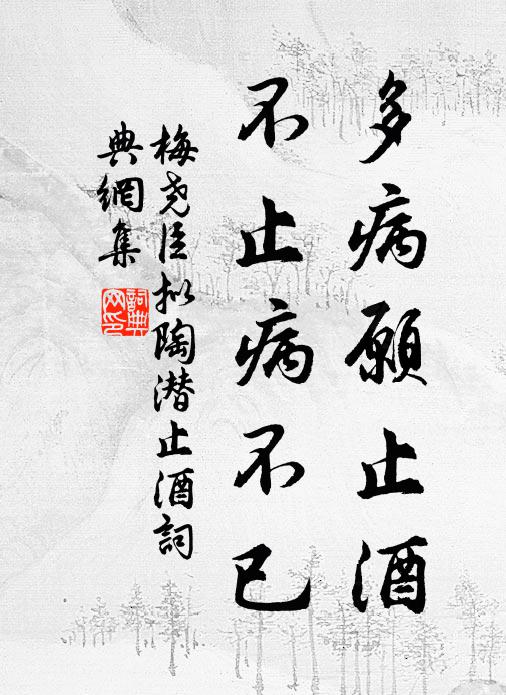 多病願止酒
不止病不已
梅尧臣拟陶潜止酒詞
典網集
詞典
网印